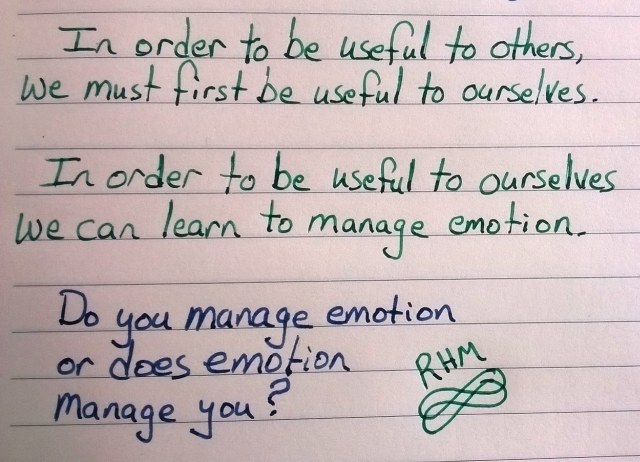 In order to be useful to others,
we must first be useful to ourselves.
In order to be useful to ourselves
we can learn to manage emotion.
Do you manage emotion
or does emotion
manage you?
RHM